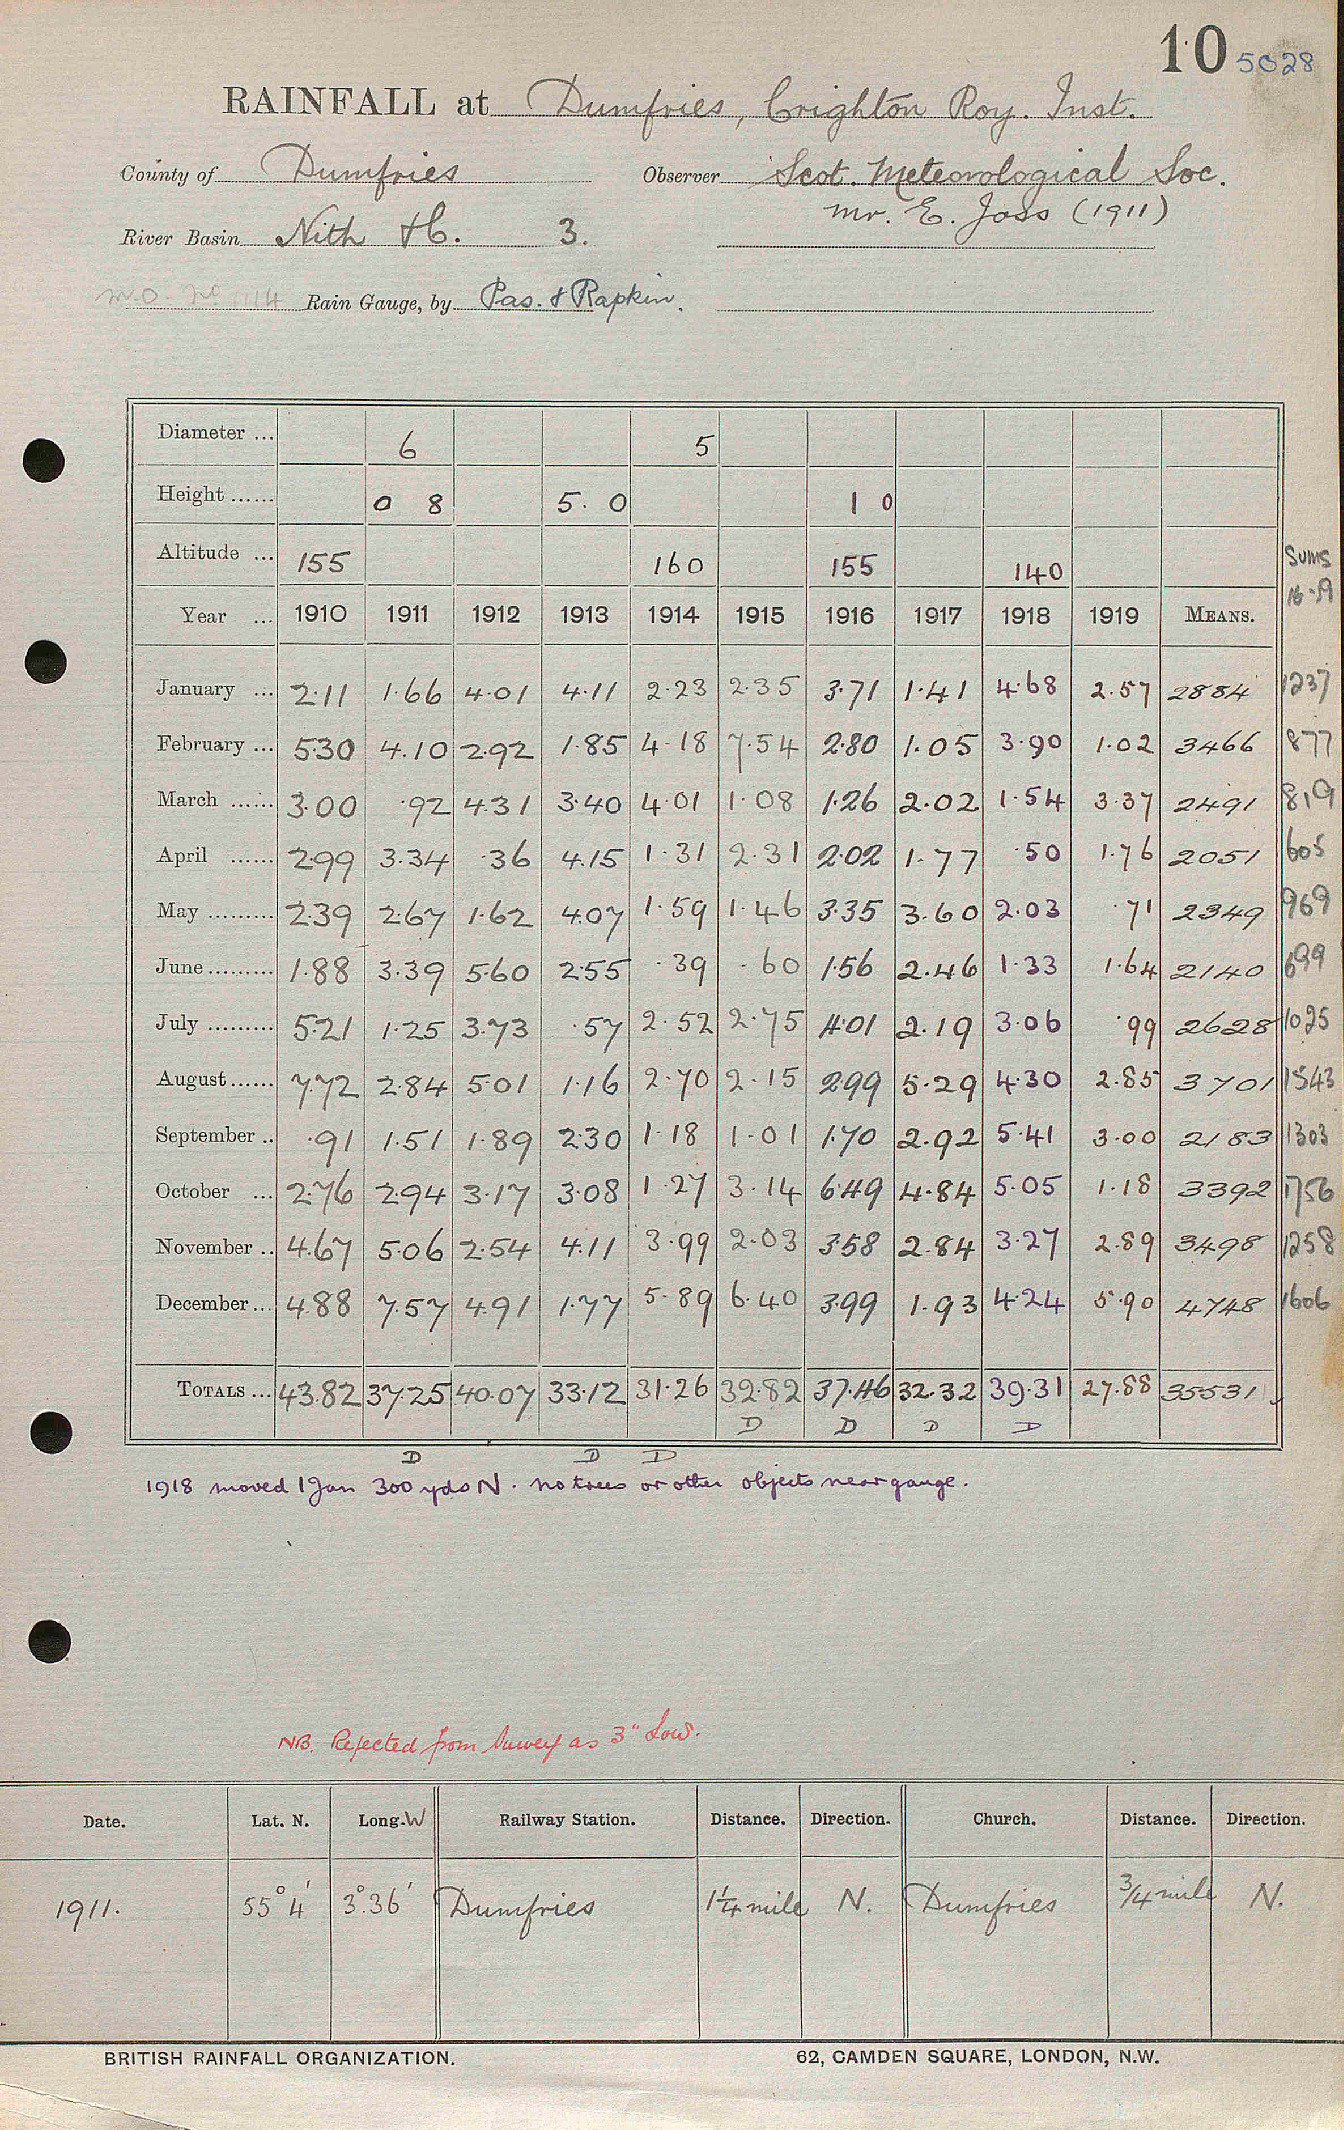 10 5028
RAINFALL at Dumfries, Crighton Roy. Inst.
County of Dumfries Observer Scot. Meteorological Soc.
Mr. E. Joss (1911)
River Basin Nith &c. 3.
M.O. No 1114 Rain Gauge, by Pas. & Rapkin.
Diameter ... 6 5
Height ...... 0 8 5. 0 1 0
Altitude ... 155 160 155 140 Sums
Year ... 1910 1911 1912 1913 1914 1915 1916 1917 1918 1919 MEANS. 16-19
January ... 2.11 1.66 4.01 4.11 2.23 2.35 3.71 1.41 4.68 2.57 2884 1237
February ... 5.30 4.10 2.92 1.85 4.18 7.54 2.80 1.05 3.90 1.02 3466 877
March ...... 3.00 .92 4.31 3.40 4.01 1.08 1.26 2.02 1.54 3.37 2491 819
April ...... 2.99 3.34 .36 4.15 1.31 2.31 2.02 1.77 .50 1.76 2051 605
May ......... 2.39 2.67 1.62 4.07 1.59 1.46 3.35 3.60 2.03 .71 2349 969
June ......... 1.88 3.39 5.60 2.55 .39 .60 1.56 2.46 1.33 1.64 2140 699
July ......... 5.21 1.25 3.73 .57 2.52 2.75 4.01 2.19 3.06 .99 2628 1025
August ...... 7.72 2.84 5.01 1.16 2.70 2.15 2.99 5.29 4.30 2.85 3701 1543
September .. .91 1.51 1.89 2.30 1.18 1.01 1.70 2.92 5.41 3.00 2183 1303
October ... 2.76 2.94 3.17 3.08 1.27 3.14 6.49 4.84 5.05 1.18 3392 1756
November .. 4.67 5.06 2.54 4.11 3.99 2.03 3.58 2.84 3.27 2.89 3498 1258
December ... 4.88 7.57 4.91 1.77 5.89 6.40 3.99 1.93 4.24 5.90 4748 1606
TOTALS ... 43.82 37.25 40.07 33.12 31.26 32.82 37.46 32.32 39.31 27.88 35531
D D D D
D D D
1918 moved 1 Jan 300 yds N. no trees or other objects near gauge.
NB. Rejected from Survey as 3" Low.
Date. Lat. N. Long. W Railway Station. Distance. Direction. Church. Distance. Direction.
1911. 55° 4' 3° 36' Dumfries 1¼ mile N. Dumfries ¾ mile N.
BRITISH RAINFALL ORGANIZATION. 62, CAMDEN SQUARE, LONDON, N.W.